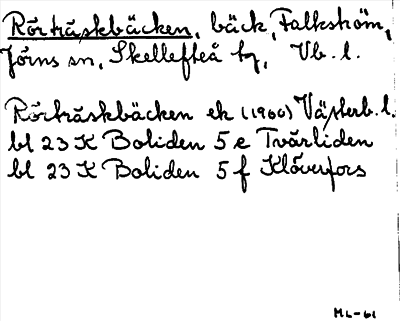 Rörträskbäcken, bäck, Falkström,
Jörns sn, Skellefteå tg, Vb. l.
Rörträskbäcken ek (1960) Västerb. l.
bl 23 K Boliden 5 e Tvärliden
bl 23 K Boliden 5 f Klöverfors
ML-61